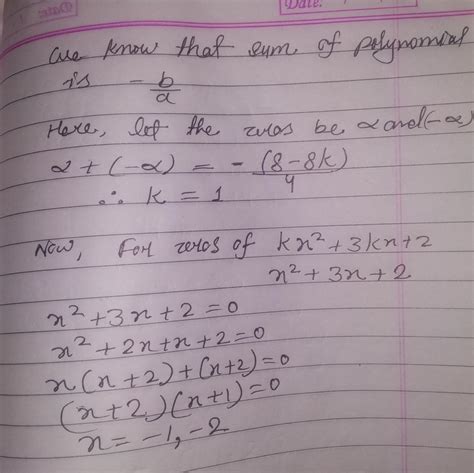 Date:
we know that sum of polynomial
is -b/a
Here, let the zeros be α and (-α)
α + (-α) = -(8-8k)/4
∴ k = 1
Now, For zeros of kx²+3kx+2
x²+3x+2
x²+3x+2=0
x²+2x+x+2=0
x(x+2)+(x+2)=0
(x+2)(x+1)=0
x=-1,-2